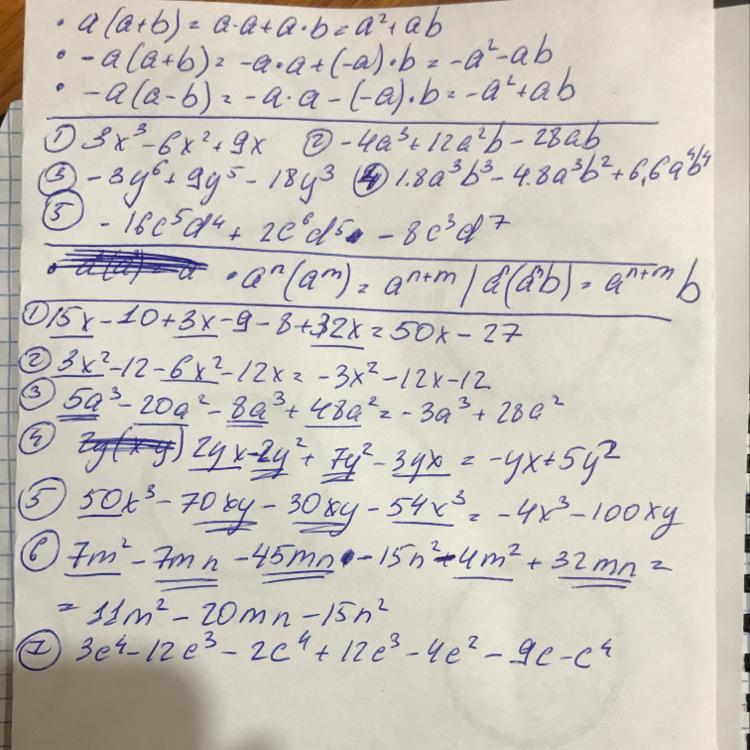 • a(a+b) = a·a+a·b=a²+ab
• -a(a+b) = -a·a+(-a)·b = -a²-ab
• -a(a-b) = -a·a-(-a)·b = -a²+ab
① 3x³-6x²+9x ② -4a³+12a²b-28ab
③ -3y⁶+9y⁵-18y³ ④ 1.8a³b³-4.8a³b²+6,6a⁴b⁴
⑤ -16c⁵d⁴+2c⁶d⁵-8c³d⁷
• aⁿ(aᵐ) = aⁿ⁺ᵐ | aⁿ(aᵐb) = aⁿ⁺ᵐb
① 15x-10+3x-9-8+32x=50x-27
② 3x²-12-6x²-12x=-3x²-12x-12
③ 5a³-20a²-8a³+48a²=-3a³+28a²
④ 2yx-2y²+7y²-3yx=-yx+5y²
⑤ 50x³-70xy-30xy-54x³=-4x³-100xy
⑥ 7m²-7mn-45mn-15n²+4m²+32mn=
=11m²-20mn-15n²
⑦ 3c⁴-12c³-2c⁴+12c³-4c²-9c-c⁴